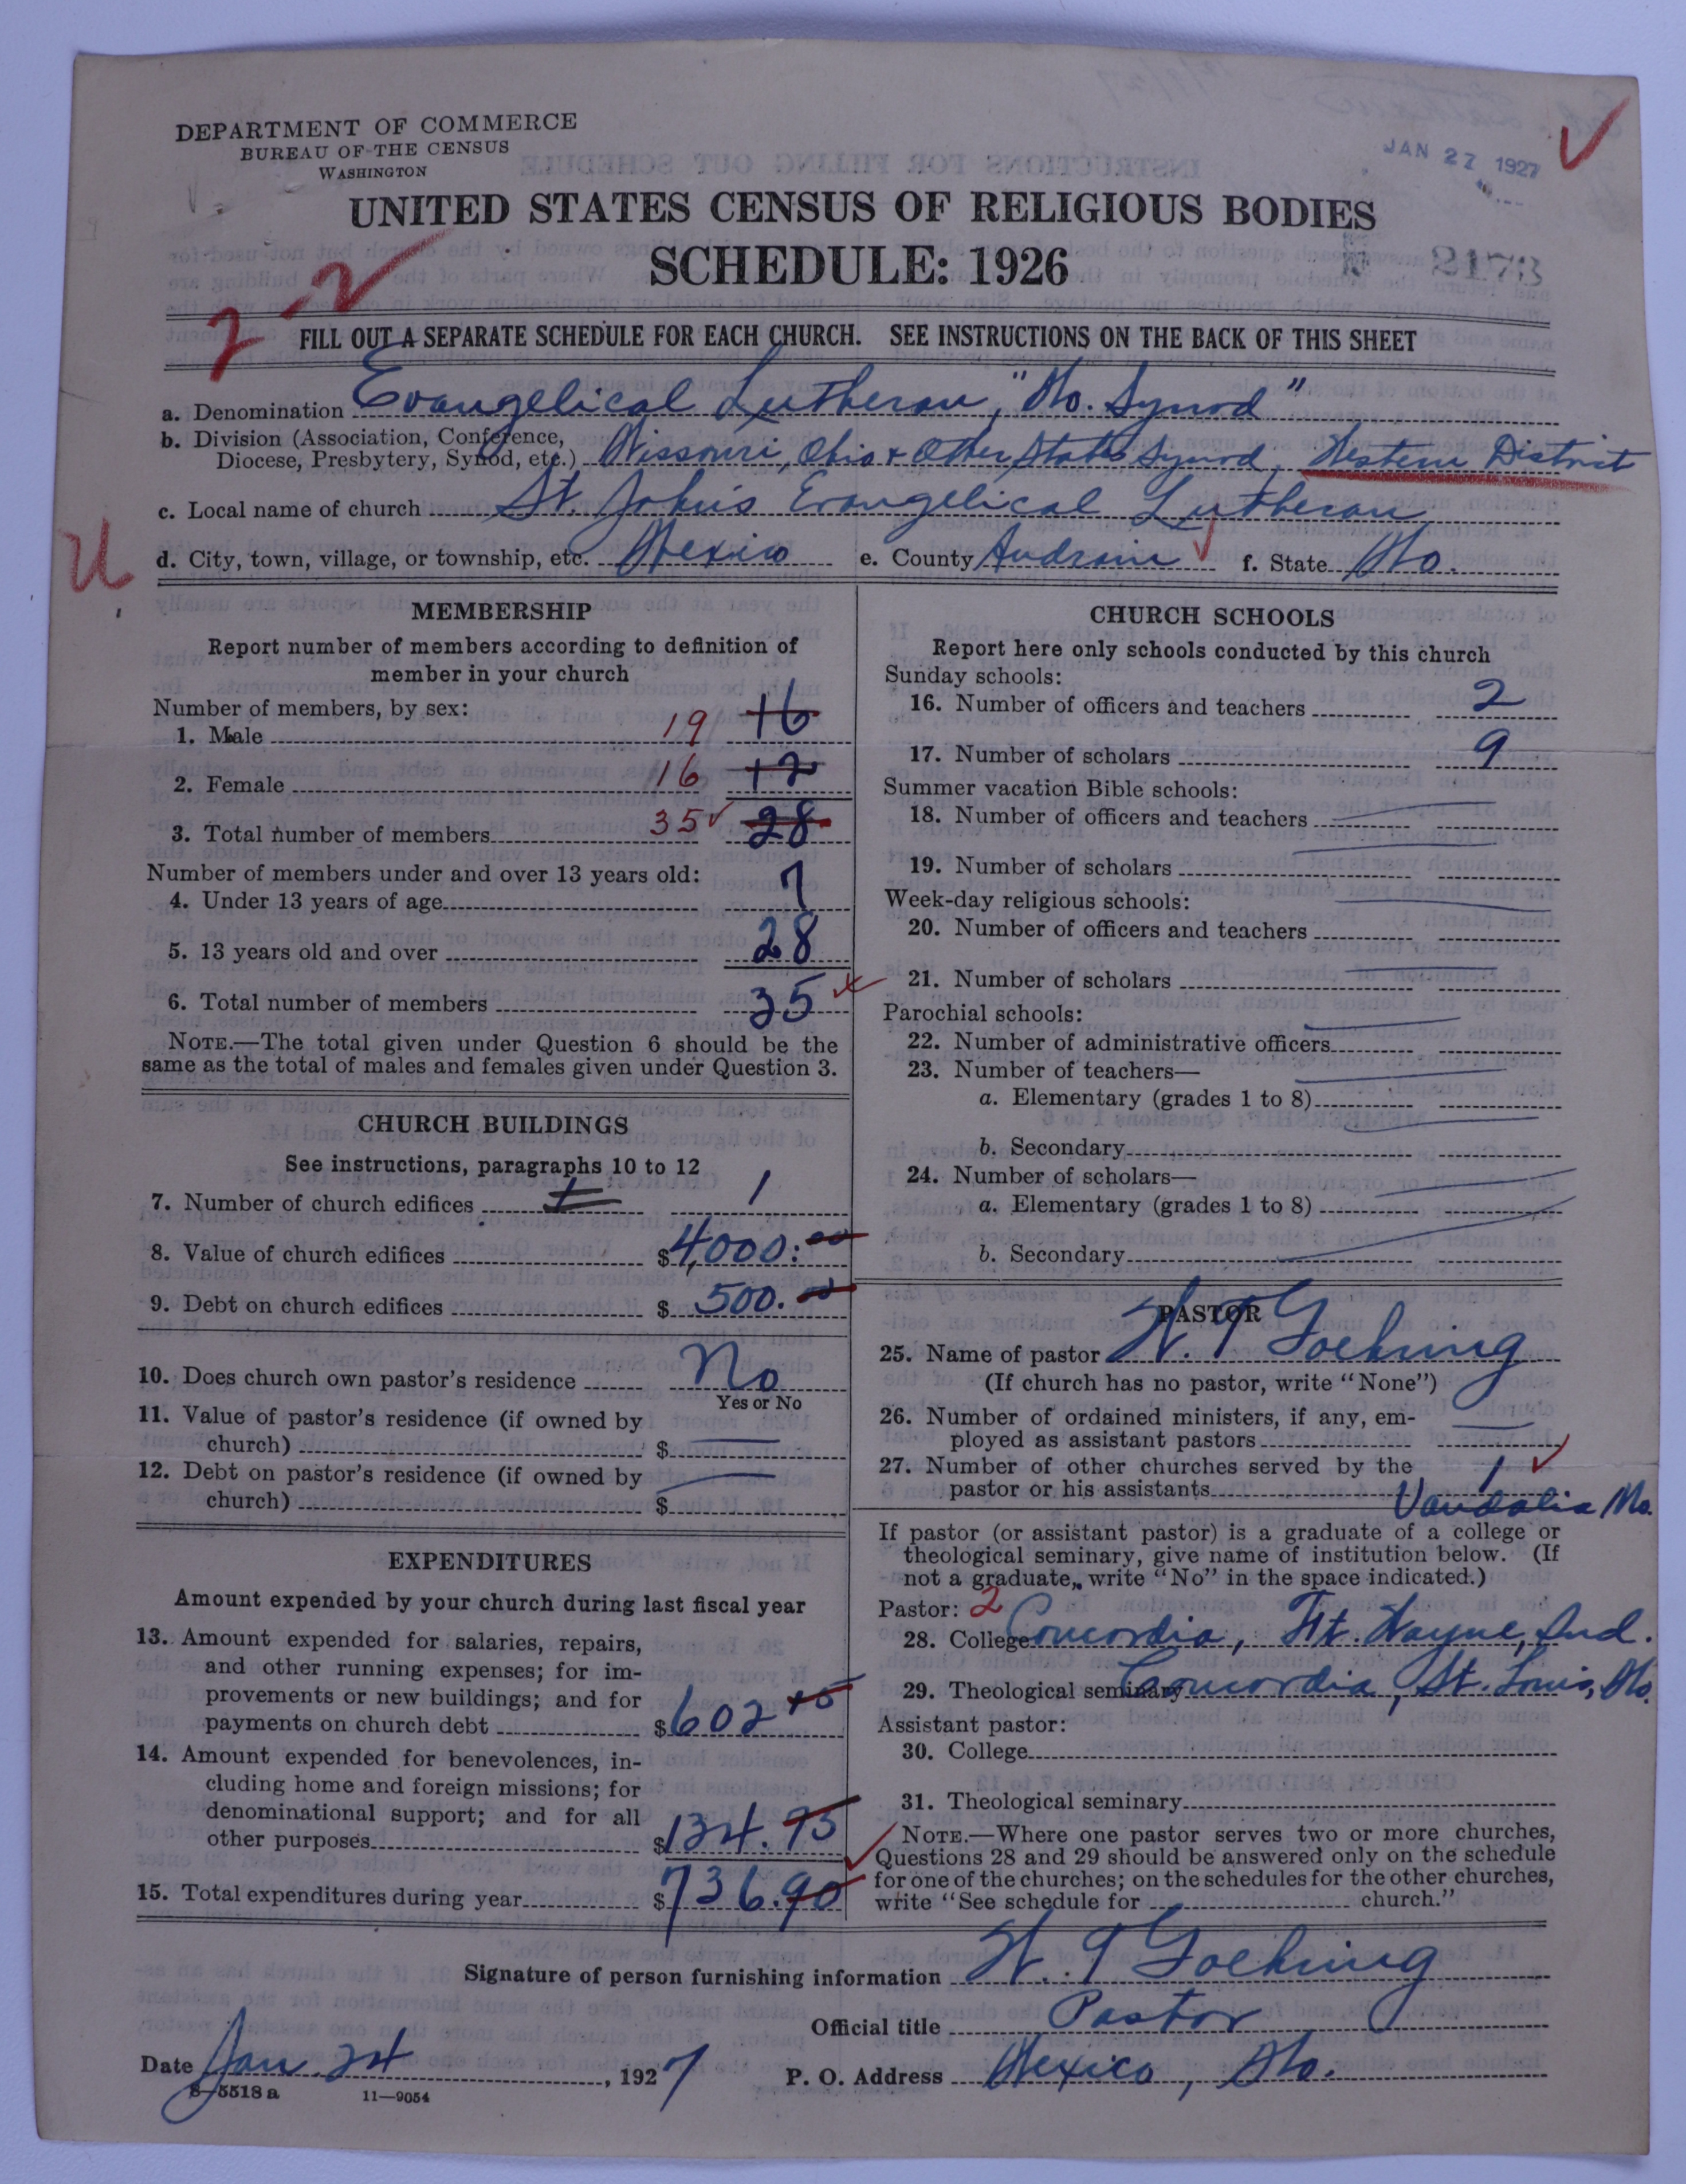 DEPARTMENT OF COMMERCE
BUREAU OF THE CENSUS
WASHINGTON
JAN 27 1927
UNITED STATES CENSUS OF RELIGIOUS BODIES
SCHEDULE: 1926
2173
2
FILL OUT A SEPARATE SCHEDULE FOR EACH CHURCH. SEE INSTRUCTIONS ON THE BACK OF THIS SHEET
a. Denomination Evangelical Lutheran, "Mo. Synod"
b. Division (Association, Conference,
Diocese, Presbytery, Synod, etc.) Missouri, Ohio & Other States Synod, Western District
c. Local name of church St. John's Evangelical Lutheran
U
d. City, town, village, or township, etc. Mexico e. County Audrain f. State Mo.
MEMBERSHIP
Report number of members according to definition of
member in your church
Number of members, by sex:
1. Male 19 16
2. Female 16 12
3. Total number of members 35 28
Number of members under and over 13 years old:
4. Under 13 years of age 7
5. 13 years old and over 28
6. Total number of members 35
NOTE.—The total given under Question 6 should be the
same as the total of males and females given under Question 3.
CHURCH BUILDINGS
See instructions, paragraphs 10 to 12
7. Number of church edifices 1 1
8. Value of church edifices $ 4,000.00
9. Debt on church edifices $ 500.00
10. Does church own pastor's residence No
Yes or No
11. Value of pastor's residence (if owned by
church) $
12. Debt on pastor's residence (if owned by
church) $
EXPENDITURES
Amount expended by your church during last fiscal year
13. Amount expended for salaries, repairs,
and other running expenses; for im-
provements or new buildings; and for
payments on church debt $ 602 15
14. Amount expended for benevolences, in-
cluding home and foreign missions; for
denominational support; and for all
other purposes $ 134.75
15. Total expenditures during year $ 736.90
CHURCH SCHOOLS
Report here only schools conducted by this church
Sunday schools:
16. Number of officers and teachers 2
17. Number of scholars 9
Summer vacation Bible schools:
18. Number of officers and teachers
19. Number of scholars
Week-day religious schools:
20. Number of officers and teachers
21. Number of scholars
Parochial schools:
22. Number of administrative officers
23. Number of teachers—
a. Elementary (grades 1 to 8)
b. Secondary
24. Number of scholars—
a. Elementary (grades 1 to 8)
b. Secondary
PASTOR
25. Name of pastor W. T Goehring
(If church has no pastor, write "None")
26. Number of ordained ministers, if any, em-
ployed as assistant pastors
27. Number of other churches served by the
pastor or his assistants 1
Vandalia Mo.
If pastor (or assistant pastor) is a graduate of a college or
theological seminary, give name of institution below. (If
not a graduate, write "No" in the space indicated.)
Pastor: 2
28. College Concordia, Ft. Wayne, Ind.
29. Theological seminary Concordia, St. Louis, Mo.
Assistant pastor:
30. College
31. Theological seminary
NOTE.—Where one pastor serves two or more churches,
Questions 28 and 29 should be answered only on the schedule
for one of the churches; on the schedules for the other churches,
write "See schedule for church."
Signature of person furnishing information W. T Goehring
Official title Pastor
Date Jan. 24, 1927 P. O. Address Mexico, Mo.
8—5518 a 11—9054